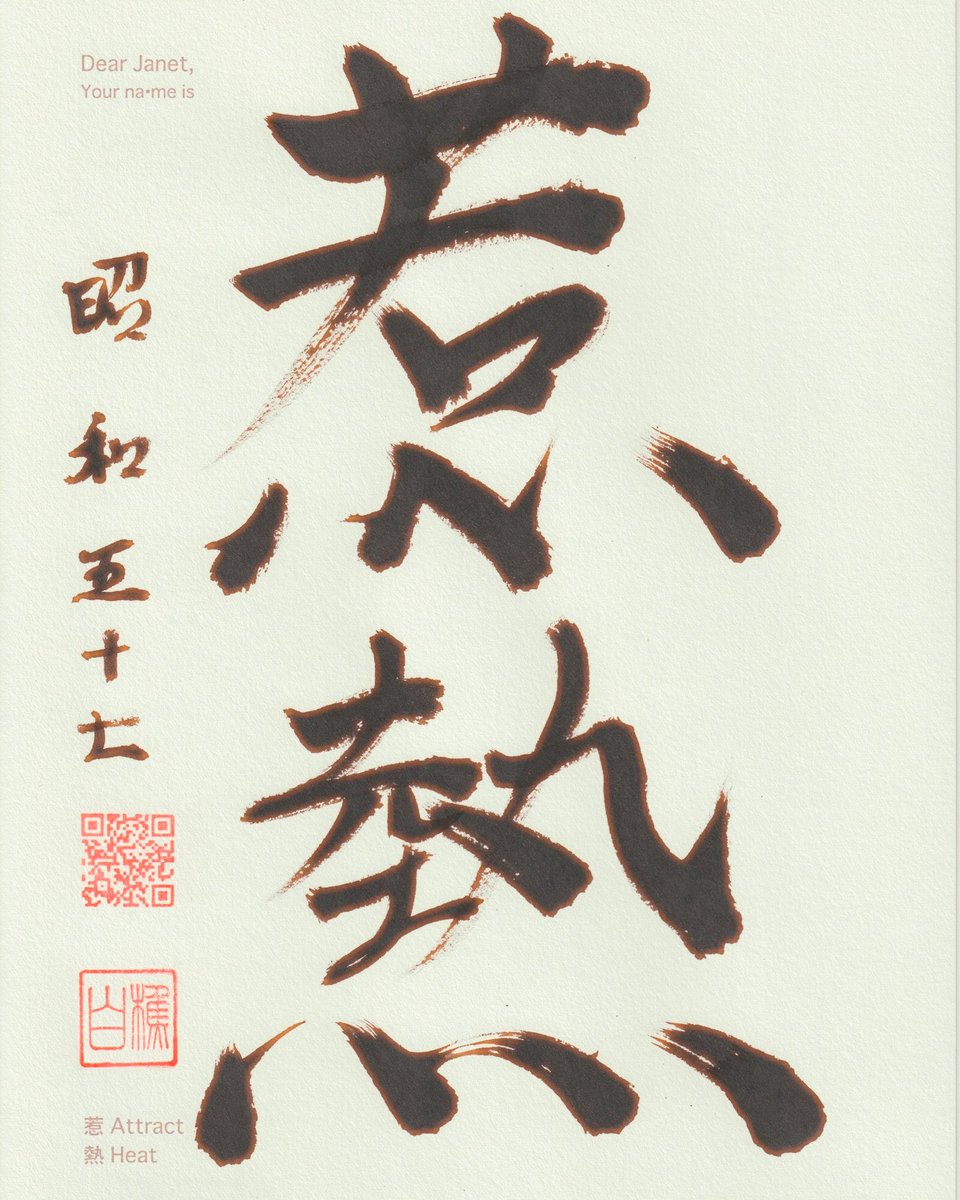 Dear Janet,
Your na•me is
惹熱
昭和五十七
惹 Attract
熱 Heat